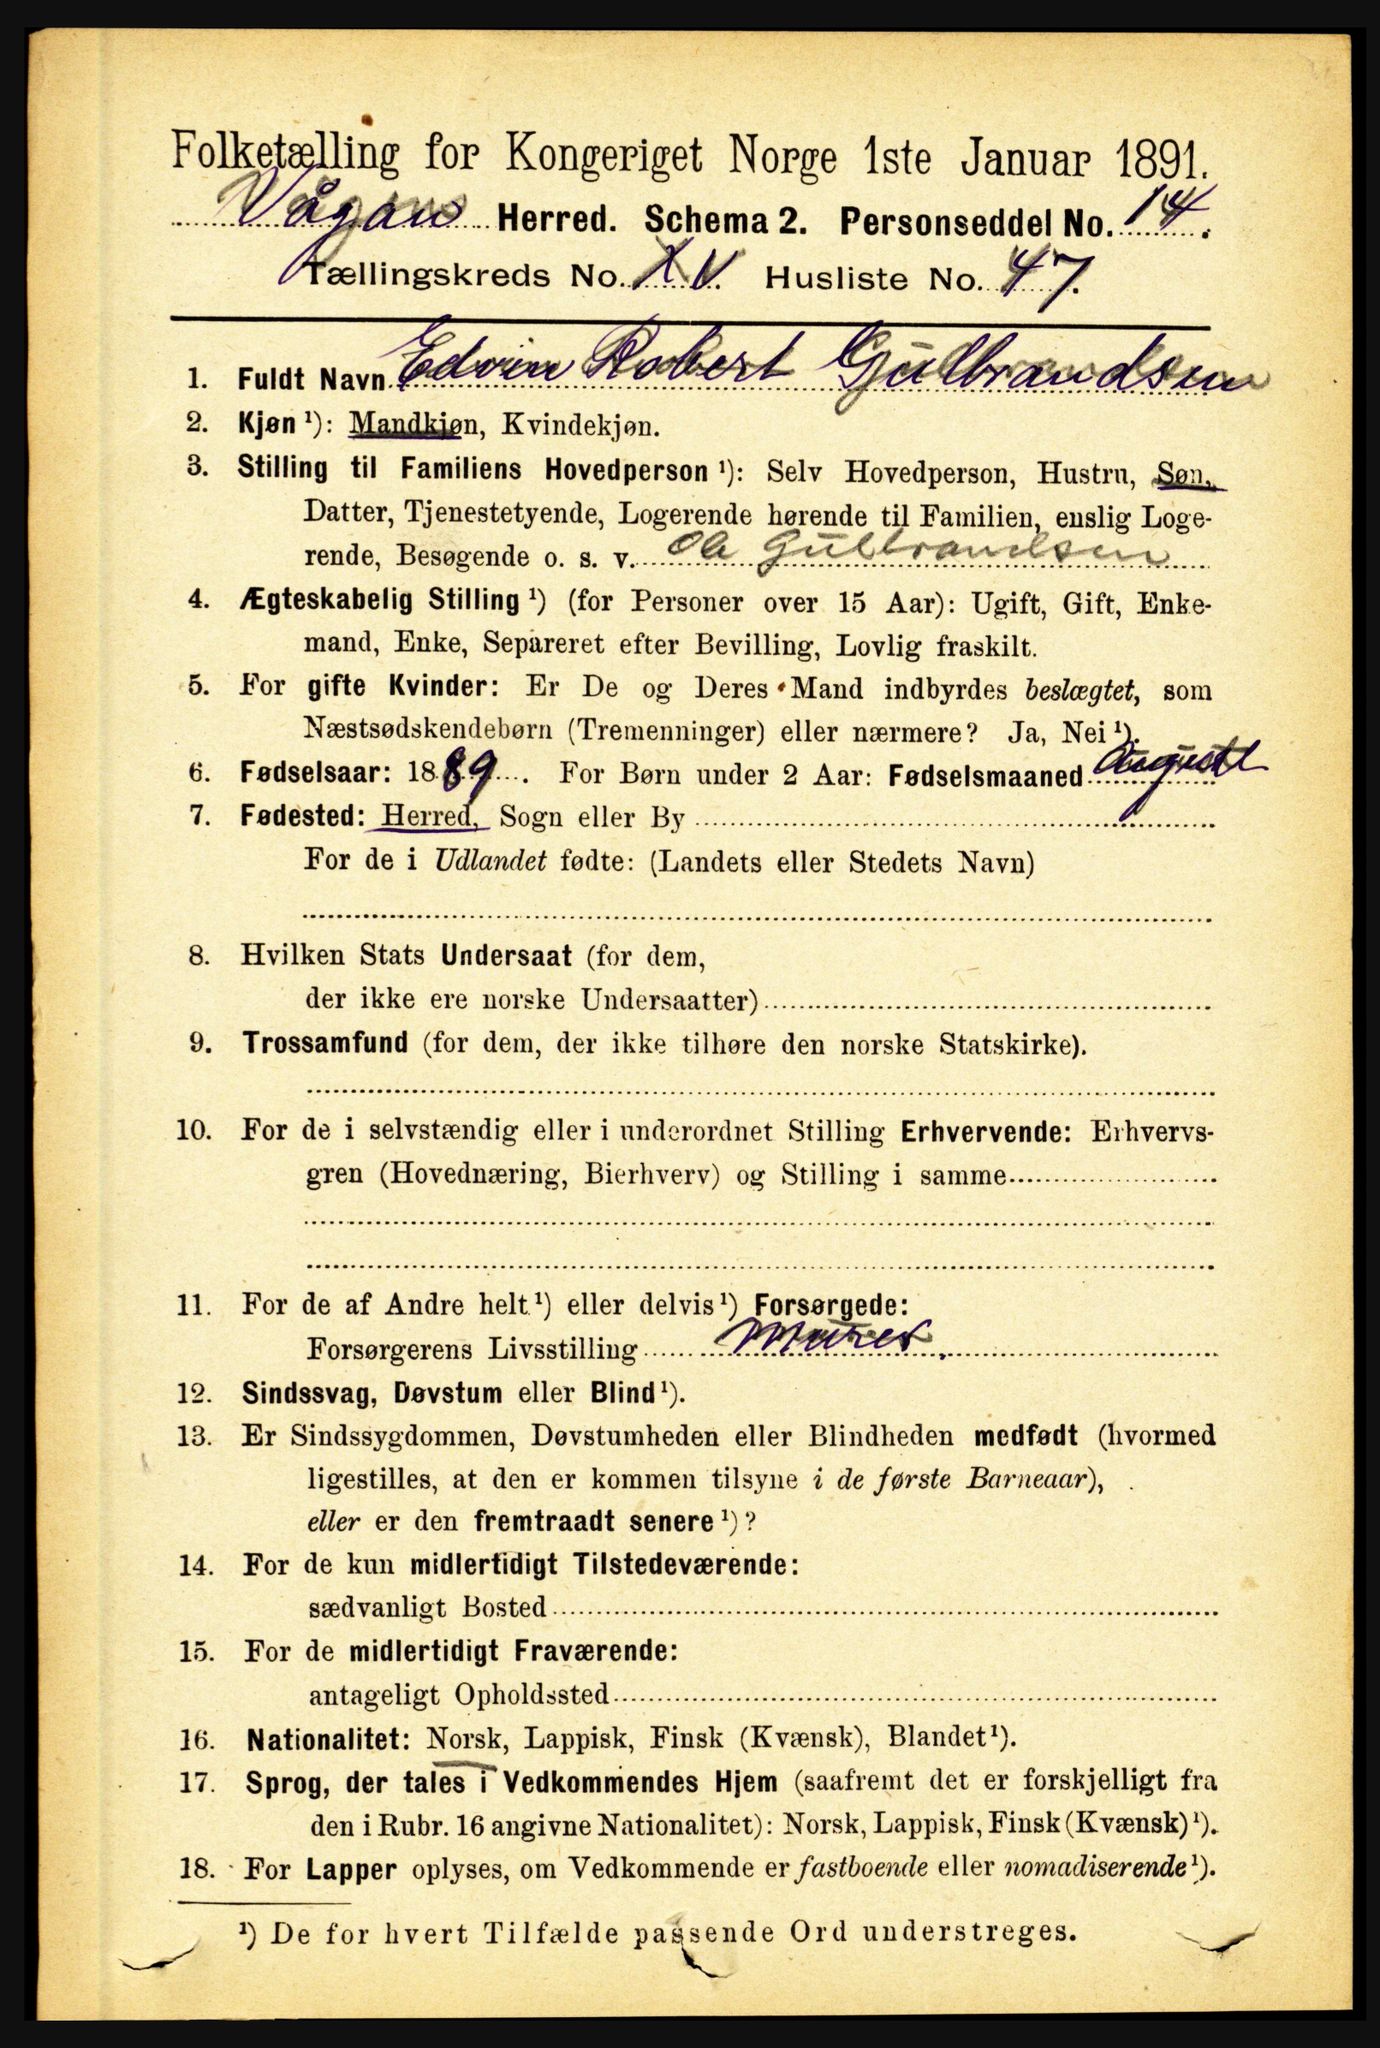 Folketælling for Kongeriget Norge 1ste Januar 1891.
Vågan Herred. Schema 2. Personseddel No. 14.
Tællingskreds No. XV. Husliste No. 47.
1. Fuldt Navn Edvin Robert Gulbrandsen
2. Kjøn ¹): Mandkjøn, Kvindekjøn.
3. Stilling til Familiens Hovedperson ¹): Selv Hovedperson, Hustru, Søn,
Datter, Tjenestetyende, Logerende hørende til Familien, enslig Loge-
rende, Besøgende o. s. v. Ole Gulbrandsen
4. Ægteskabelig Stilling ¹) (for Personer over 15 Aar): Ugift, Gift, Enke-
mand, Enke, Separeret efter Bevilling, Lovlig fraskilt.
5. For gifte Kvinder: Er De og Deres Mand indbyrdes beslægtet, som
Næstsødskendebørn (Tremenninger) eller nærmere? Ja, Nei ¹).
6. Fødselsaar: 1889. For Børn under 2 Aar: Fødselsmaaned August
7. Fødested: Herred, Sogn eller By
For de i Udlandet fødte: (Landets eller Stedets Navn)
8. Hvilken Stats Undersaat (for dem,
der ikke ere norske Undersaatter)
9. Trossamfund (for dem, der ikke tilhøre den norske Statskirke).
10. For de i selvstændig eller i underordnet Stilling Erhvervende: Erhvervs-
gren (Hovednæring, Bierhverv) og Stilling i samme
11. For de af Andre helt ¹) eller delvis ¹) Forsørgede:
Forsørgerens Livsstilling Murer.
12. Sindssvag, Døvstum eller Blind ¹).
13. Er Sindssygdommen, Døvstumheden eller Blindheden medfødt (hvormed
ligestilles, at den er kommen tilsyne i de første Barneaar),
eller er den fremtraadt senere ¹)?
14. For de kun midlertidigt Tilstedeværende:
sædvanligt Bosted
15. For de midlertidigt Fraværende:
antageligt Opholdssted
16. Nationalitet: Norsk, Lappisk, Finsk (Kvænsk), Blandet ¹).
17. Sprog, der tales i Vedkommendes Hjem (saafremt det er forskjelligt fra
den i Rubr. 16 angivne Nationalitet): Norsk, Lappisk, Finsk (Kvænsk) ¹).
18. For Lapper oplyses, om Vedkommende er fastboende eller nomadiserende ¹).
¹) De for hvert Tilfælde passende Ord understreges.